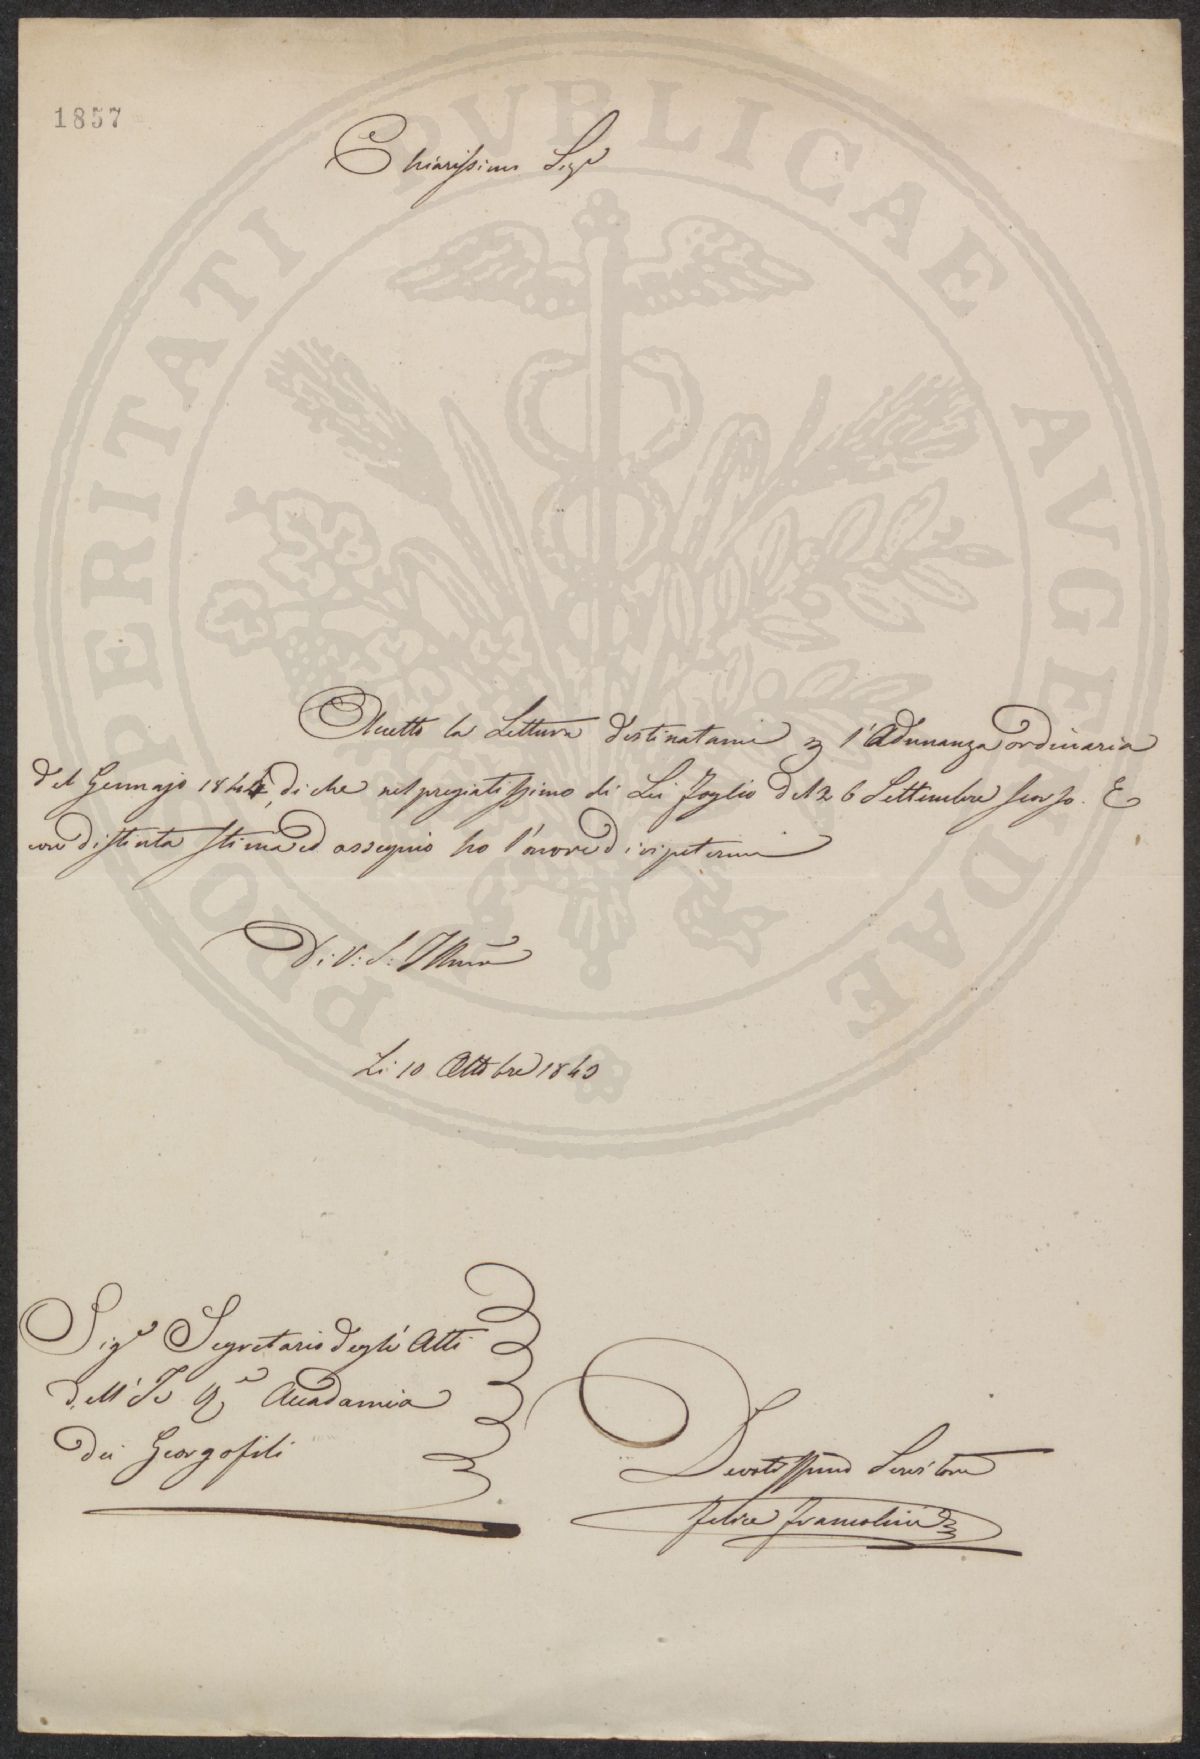 1857
PROSPERITATI PVBLICAE AVGENDAE
Chiarissimo Sigre
Accetto la Lettura destinatami p l'Adunanza ordinaria
del Gennajo 1844, di che nel pregiatissimo di Lei foglio del 26 Settembre scorso. E
con distinta stima ed ossequio ho l'onore di ripetermi
Di V: S: Illma
Li 10 Ottobre 1843
Sigre Segretario degli Atti
dell' I e R e Accadamia
dei Georgofili
Devotissimo Servitore
Felice Francolini